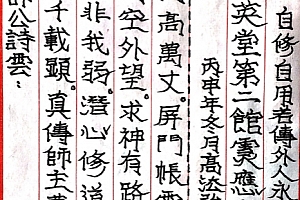 自修自用若傳外人永
英堂第二館靈應
丙申年冬月高法
高萬丈。屏門帳
空外望。求神有路
非我弱。潛心修道
千載顯。真傳師主
師公詩雲：